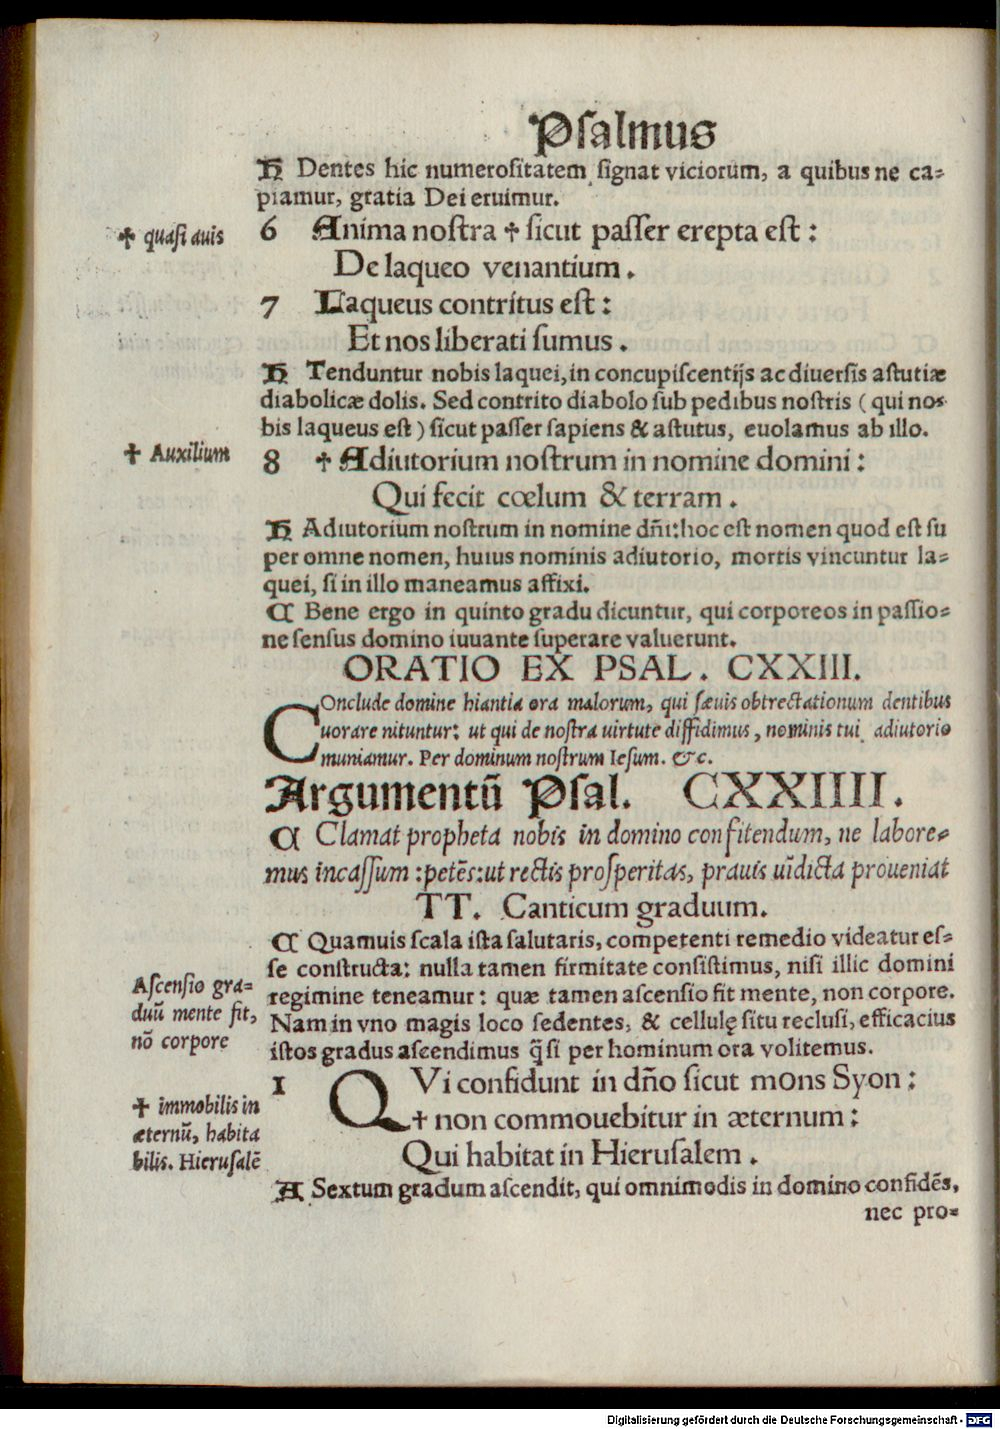 Psalmus
H Dentes hic numerositatem signat viciorum, a quibus ne ca-
piamur, gratia Dei eruimur.
✝ quasi auis
6 Anima nostra ✝ sicut passer erepta est :
De laqueo venantium .
7 Laqueus contritus est :
Et nos liberati sumus .
H Tenduntur nobis laquei, in concupiscentijs ac diuersis astutiæ
diabolicæ dolis. Sed contrito diabolo sub pedibus nostris ( qui no-
bis laqueus est ) sicut passer sapiens & astutus, euolamus ab illo.
✝ Auxilium
8 ✝ Adiutorium nostrum in nomine domini :
Qui fecit cœlum & terram .
H Adiutorium nostrum in nomine dñi: hoc est nomen quod est su
per omne nomen, huius nominis adiutorio, mortis vincuntur la-
quei, si in illo maneamus affixi.
¶ Bene ergo in quinto gradu dicuntur, qui corporeos in passio-
ne sensus domino iuuante superare valuerunt.
ORATIO EX PSAL . CXXIII.
COnclude domine hiantia ora malorum, qui sæuis obtrectationum dentibus
uorare nituntur: ut qui de nostra uirtute diffidimus , nominis tui adiutorio
muniamur. Per dominum nostrum Iesum. &c.
Argumentū Psal. CXXIIII .
¶ Clamat propheta nobis in domino confitendum, ne labore-
mus incassum : petēs: ut rectis prosperitas, prauis uīdicta proueniat
TT. Canticum graduum.
¶ Quamuis scala ista salutaris, competenti remedio videatur es-
se constructa: nulla tamen firmitate consistimus, nisi illic domini
Ascensio gra-
duū mente fit,
nō corpore
regimine teneamur: quæ tamen ascensio fit mente, non corpore.
Nam in vno magis loco sedentes, & cellulę situ reclusi, efficacius
istos gradus ascendimus q̃ si per hominum ora volitemus.
1 QVi confidunt in dño sicut mons Syon :
✝ immobilis in
æternū, habita
bilis. Hierusalē
✝ non commouebitur in æternum :
Qui habitat in Hierusalem .
A Sextum gradum ascendit, qui omnimodis in domino confidēs,
nec pro-
Digitalisierung gefördert durch die Deutsche Forschungsgemeinschaft - DFG